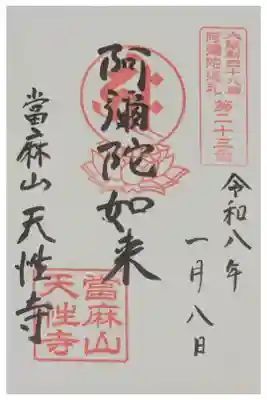 四十八願
阿彌陀巡礼
第二十三番
令和八年
一月八日
阿彌陀如来
當麻山 天性寺
當麻山
天性寺